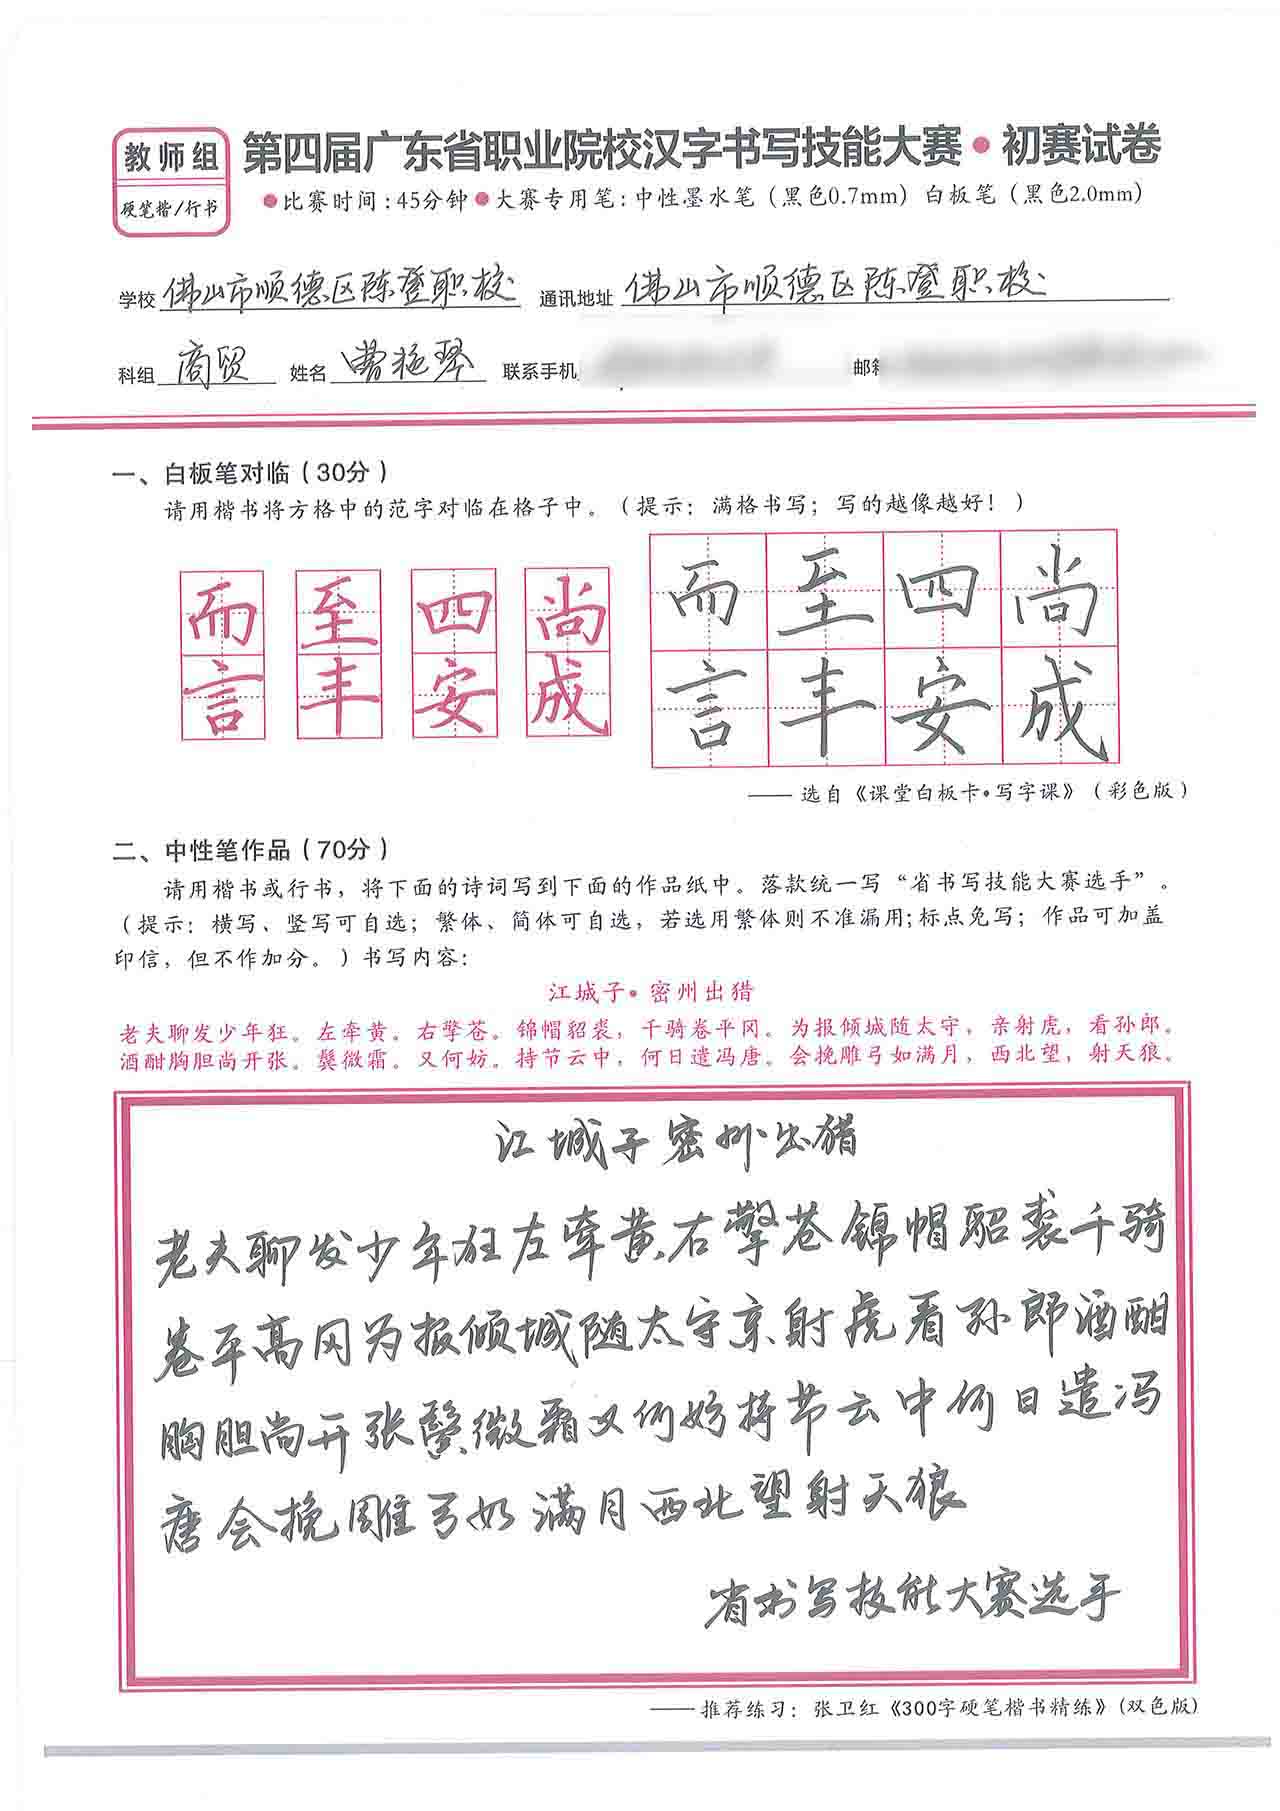 教师组
硬笔楷/行书
第四届广东省职业院校汉字书写技能大赛●初赛试卷
●比赛时间:45分钟●大赛专用笔:中性墨水笔（黑色0.7mm）白板笔（黑色2.0mm）
学校 佛山市顺德区陈登职校 通讯地址 佛山市顺德区陈登职校
科组 商贸 姓名 曹艳琴 联系手机 邮箱
一、白板笔对临（30分）
请用楷书将方格中的范字对临在格子中。（提示：满格书写；写的越像越好！）
而 至 四 尚 而 至 四 尚
言 丰 安 成 言 丰 安 成
—— 选自《课堂白板卡•写字课》（彩色版）
二、中性笔作品（70分）
请用楷书或行书，将下面的诗词写到下面的作品纸中。落款统一写“省书写技能大赛选手”。
（提示：横写、竖写可自选；繁体、简体可自选，若选用繁体则不准漏用;标点免写；作品可加盖
印信，但不作加分。）书写内容：
江城子•密州出猎
老夫聊发少年狂。左牵黄。右擎苍。锦帽貂裘，千骑卷平冈。为报倾城随太守，亲射虎，看孙郎。
酒酣胸胆尚开张。鬓微霜。又何妨。持节云中，何日遣冯唐。会挽雕弓如满月，西北望，射天狼。
江城子密州出猎
老夫聊发少年狂左牵黄右擎苍锦帽貂裘千骑
卷平高冈为报倾城随太守亲射虎看孙郎酒酣
胸胆尚开张鬓微霜又何妨持节云中何日遣冯
唐会挽雕弓如满月西北望射天狼
省书写技能大赛选手
——推荐练习：张卫红《300字硬笔楷书精练》(双色版)